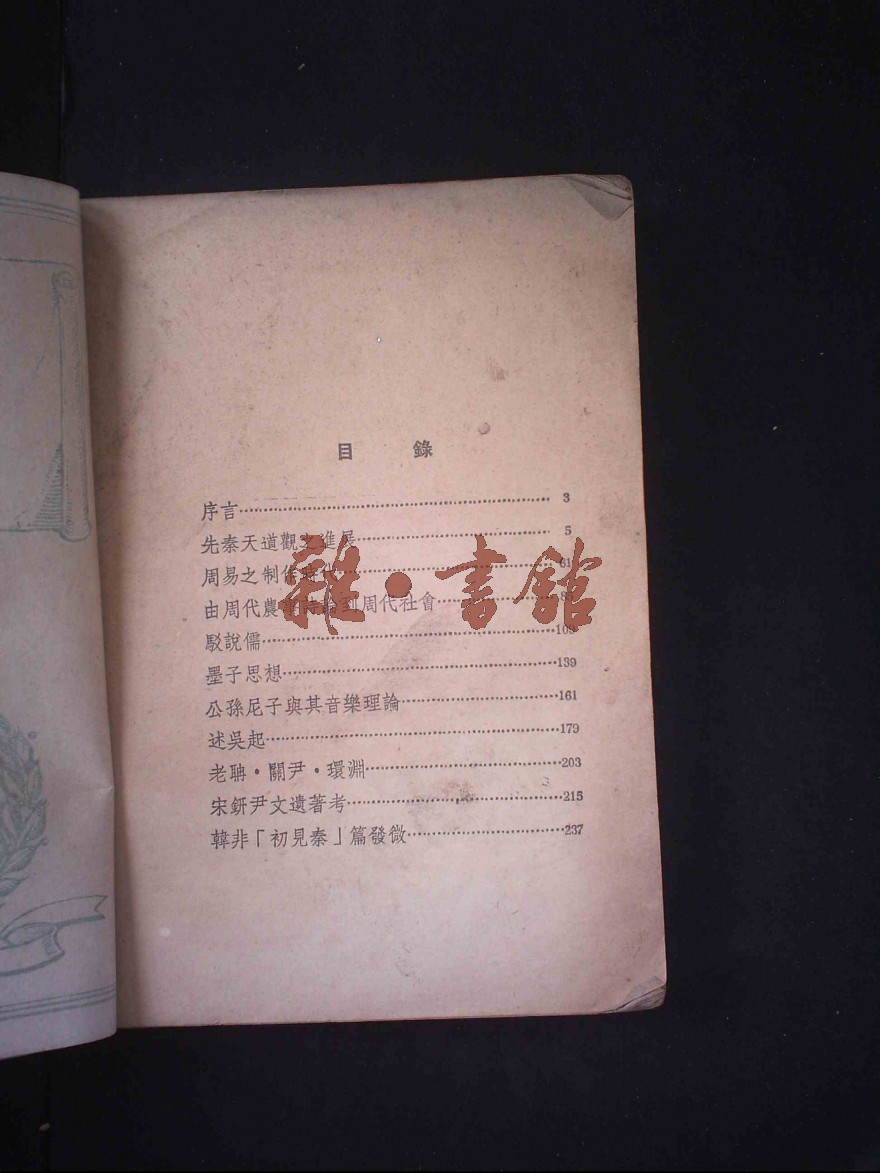 目 錄
序言 3
先秦天道觀之進展 5
周易之制作時代 61
由周代農事詩論到周代社會
駁說儒 109
墨子思想 139
公孫尼子與其音樂理論 161
述吳起 179
老聃・關尹・環淵 203
宋鈃尹文遺著考 215
韓非「初見秦」篇發微 237
雜・書館